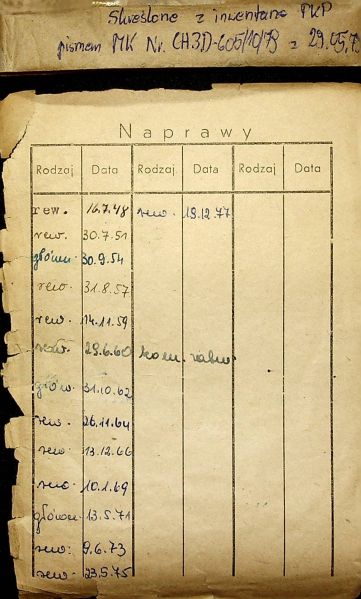 Skreślone z inwentarza PKP
pismem MK Nr. CH3D-605/10/78 z 29.05.78
Naprawy
Rodzaj Data Rodzaj Data Rodzaj Data
rew. 16.7.48 rew. 19.12.77
rew. 30.7.51
główn. 30.9.54
rew. 31.8.57
rew. 14.11.59
rew. 29.6.60 kom. zabw.
główn. 31.10.62
rew. 26.11.64
rew. 13.12.66
rew. 10.1.69
główn. 13.5.71
rew. 9.6.73
rew. 23.5.75